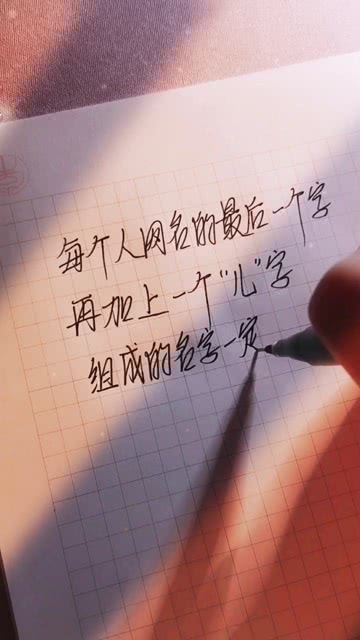 每个人网名的最后一个字
再加上一个“儿”字
组成的名字一定